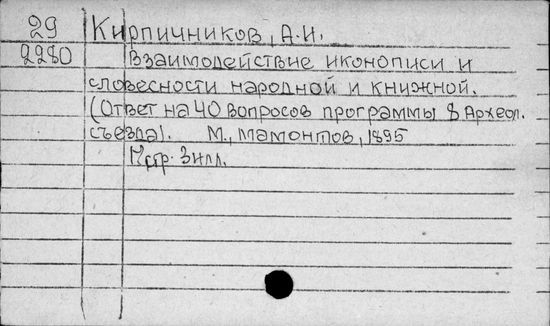 29 Кирпичников, А.И.
2280 Взаимодействие иконописи и
словесности народной и книжной.
(Ответ на 40 вопросов программы 8 Археол.
съезда). М., Мамонтов, 1895
стр. 3 илл.